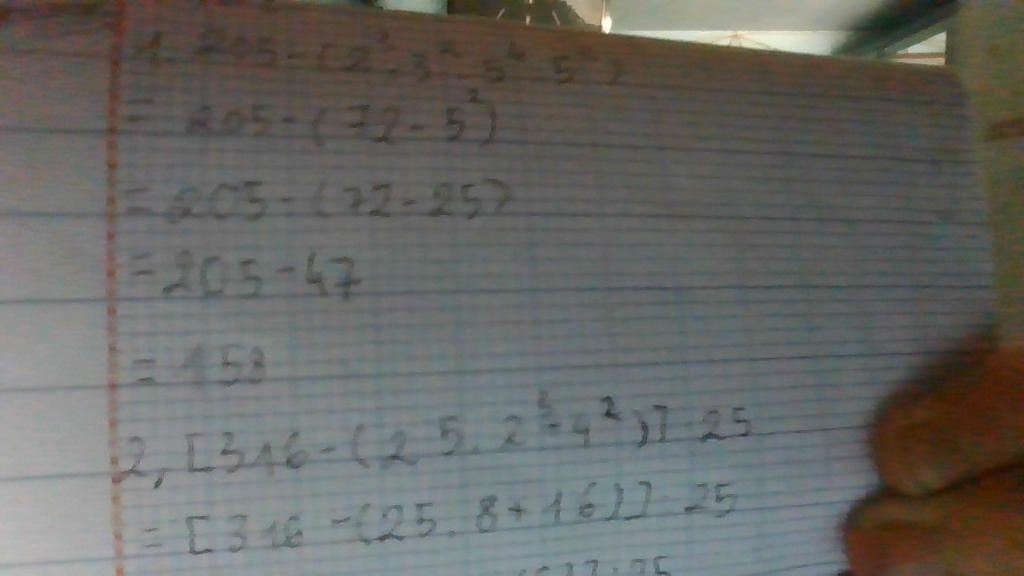 1. 205-(2³.3² 5⁴ 5²)
= 205-(72-5²)
= 205-(72-25)
= 205-47
= 158
2, [316-(25.2³-4²)] 25
= [316-(25.8+16)] 25